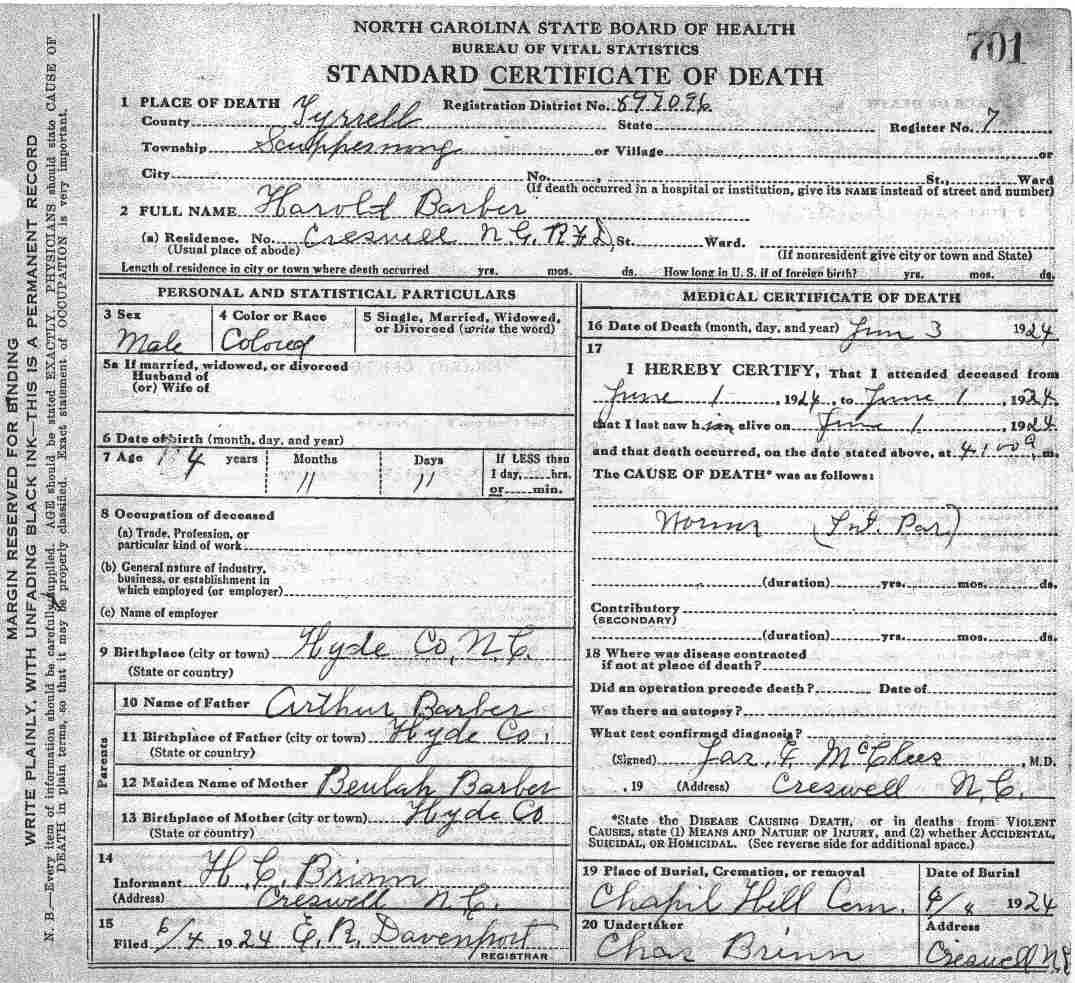 NORTH CAROLINA STATE BOARD OF HEALTH
BUREAU OF VITAL STATISTICS
701
STANDARD CERTIFICATE OF DEATH
1 PLACE OF DEATH Registration District No. 897096
County Tyrrell State Register No. 7
Township Scuppernong or Village or
City No. , St., Ward
(If death occurred in a hospital or institution, give its NAME instead of street and number)
2 FULL NAME Harold Barber
(a) Residence. No. Creswell N.C. R.F.D. St. Ward.
(Usual place of abode) (If nonresident give city or town and State)
Length of residence in city or town where death occurred yrs. mos. ds. How long in U. S. if of foreign birth? yrs. mos. ds.
PERSONAL AND STATISTICAL PARTICULARS
3 Sex 4 Color or Race 5 Single, Married, Widowed,
or Divorced (write the word)
Male Colored
5a If married, widowed, or divorced
Husband of
(or) Wife of
6 Date of birth (month, day, and year)
7 Age 4 years Months Days If LESS then
11 11 1 day, hrs.
or min.
8 Occupation of deceased
(a) Trade, Profession, or
particular kind of work
(b) General nature of industry,
business, or establishment in
which employed (or employer)
(c) Name of employer
9 Birthplace (city or town) Hyde Co, N.C.
(State or country)
Parents
10 Name of Father Arthur Barber
11 Birthplace of Father (city or town) Hyde Co.
(State or country)
12 Maiden Name of Mother Beulah Barber
13 Birthplace of Mother (city or town) Hyde Co
(State or country)
14
Informant H. C. Brinn
(Address) Creswell N.C.
15
Filed 6/4 1924 E. R. Davenport
REGISTRAR
MEDICAL CERTIFICATE OF DEATH
16 Date of Death (month, day, and year) Jun 3 1924
17
I HEREBY CERTIFY, That I attended deceased from
June 1, 1924, to June 1, 1924
that I last saw him alive on June 1, 1924
and that death occurred, on the date stated above, at 4:00 a m.
The CAUSE OF DEATH* was as follows:
Worms (Int. Par)
(duration) yrs. mos. ds.
Contributory
(SECONDARY)
(duration) yrs. mos. ds.
18 Where was disease contracted
if not at place of death?
Did an operation precede death? Date of
Was there an autopsy?
What test confirmed diagnosis?
(Signed) Jas. F. McClees, M.D.
, 19 (Address) Creswell N.C.
*State the DISEASE CAUSING DEATH, or in deaths from VIOLENT
CAUSES, state (1) MEANS AND NATURE OF INJURY, and (2) whether ACCIDENTAL,
SUICIDAL, OR HOMICIDAL. (See reverse side for additional space.)
19 Place of Burial, Cremation, or removal Date of Burial
Chapil Hill Cem. 6/4 1924
20 Undertaker Address
Chas Brinn Creswell N.C.
MARGIN RESERVED FOR BINDING
WRITE PLAINLY, WITH UNFADING BLACK INK—THIS IS A PERMANENT RECORD
N. B.—Every item of information should be carefully supplied. AGE should be stated EXACTLY. PHYSICIANS should state CAUSE OF
DEATH in plain terms, so that it may be properly classified. Exact statement of OCCUPATION is very important.